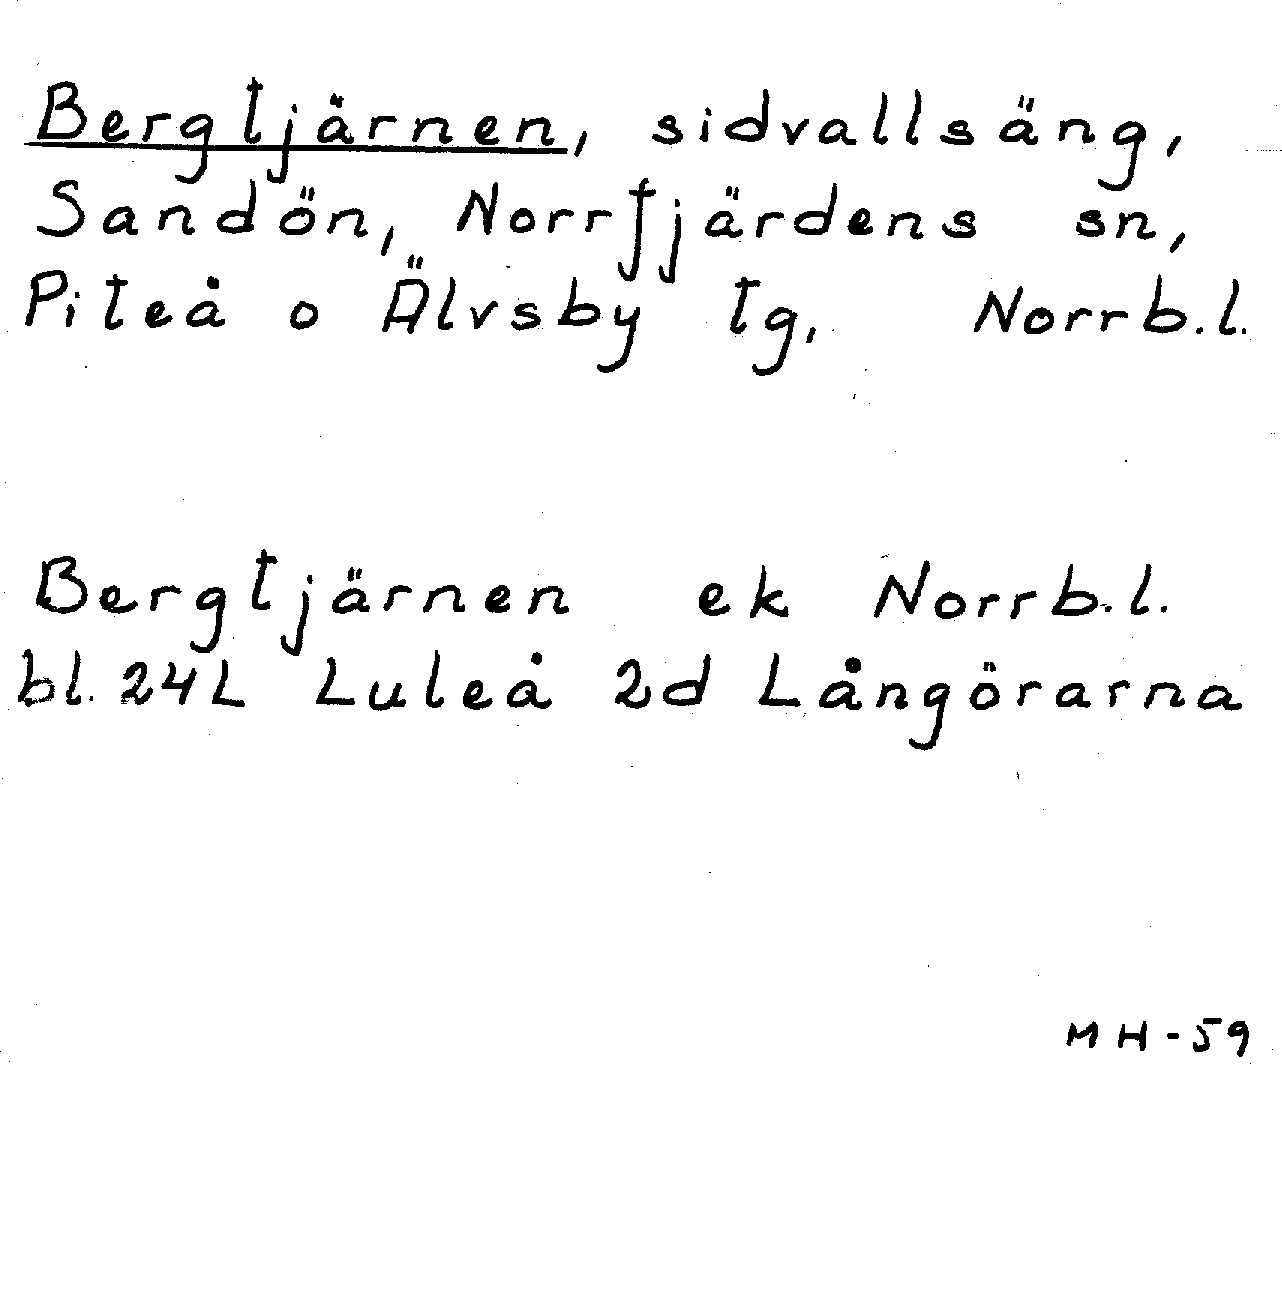 Bergtjärnen, sidvallsäng,
Sandön, Norrfjärdens sn,
Piteå o Älvsby tg, Norrb.l.
Bergtjärnen ek Norrb.l.
bl. 24L Luleå 2d Långörarna
MH-59